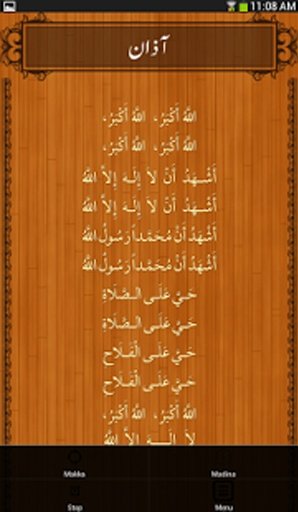 11:08 AM
آذان
اللهُ أَكْبَرُ، اللهُ أَكْبَرُ،
اللهُ أَكْبَرُ، اللهُ أَكْبَرُ،
أَشْهَدُ أَنْ لاَ إِلَهَ إِلاَّ اللهُ
أَشْهَدُ أَنْ لاَ إِلَهَ إِلاَّ اللهُ
أَشْهَدُ أَنَّ مُحَمَّداً رَسُولُ اللهُ
أَشْهَدُ أَنَّ مُحَمَّداً رَسُولُ اللهُ
حَيَّ عَلَى الصَّلَاةِ
حَيَّ عَلَى الصَّلَاةِ
حَيَّ عَلَى الْفَلَاحِ
حَيَّ عَلَى الْفَلَاحِ
اللهُ أَكْبَرُ، اللهُ أَكْبَرُ،
لاَ إِلَهَ إِلاَّ اللهُ
Makka Madina
Stop Menu